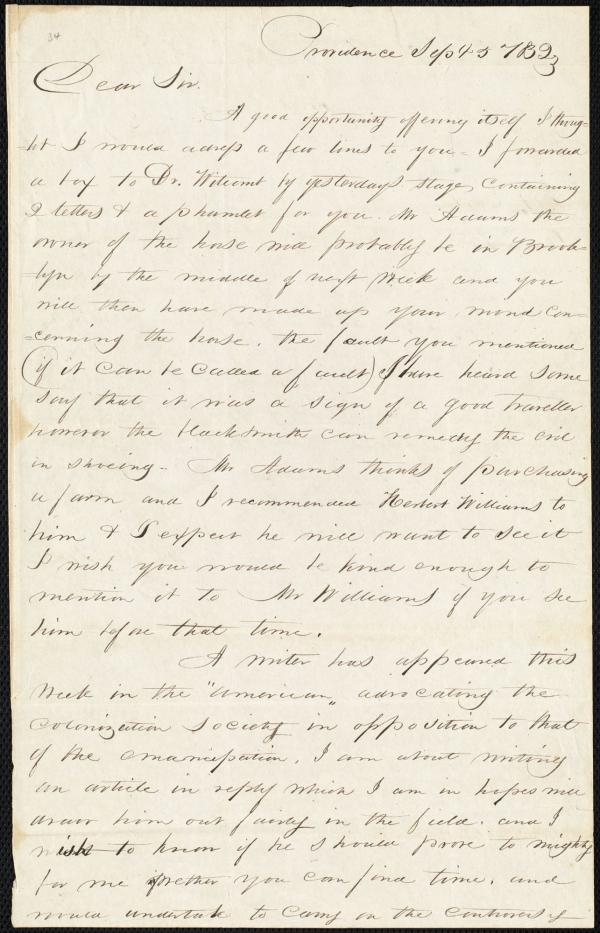 34
Providence Sep 4 5 1833
Dear Sir.
A good opportunity offering itself I thoug=
=ht I would adress a few lines to you - I forwarded
a box to Dr. Wilcomb by yesterdays stage, containing
2 letters & a phamlet for you. Mr Adams the
owner of the horse will probably be in Brook=
lyn by the middle of next week and you
will then have made up your mind con=
=cerning the horse. the fault you mentioned
(if it can be called a fault) I have heard some
say that it was a sign of a good traveller
however the blacksmith can remedy the evil
in shoeing - Mr Adams thinks of purchasing
a farm and I recommended Herbert Williams to
him & I expect he will want to see it
I wish you would be kind enough to
mention it to Mr Williams if you see
him before that time.
A writer has appeared this
week in the "American" advocating the
Colonization Society in opposition to that
of the emancipation. I am about writing
an article in reply which I am in hopes will
draw him out fairly in the field. and I
wish to know if he should prove to mighty
for me whether you can find time, and
would undertake to carry on the controversy